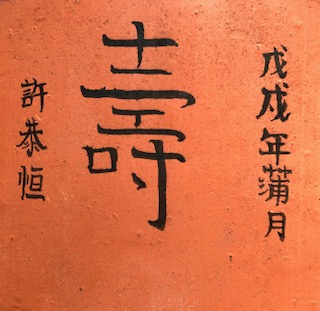 戊戌年蒲月
壽
許恭恒